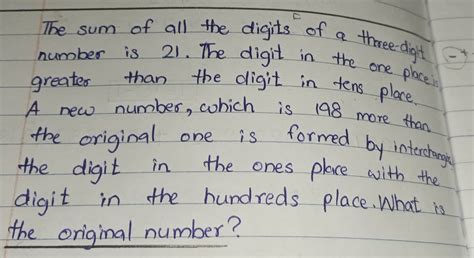 The sum of all the digits of a three-digit
number is 21. The digit in the one place is
greater than the digit in tens place.
A new number, which is 198 more than
the original one is formed by interchanging
the digit in the ones place with the
digit in the hundreds place. What is
the original number?